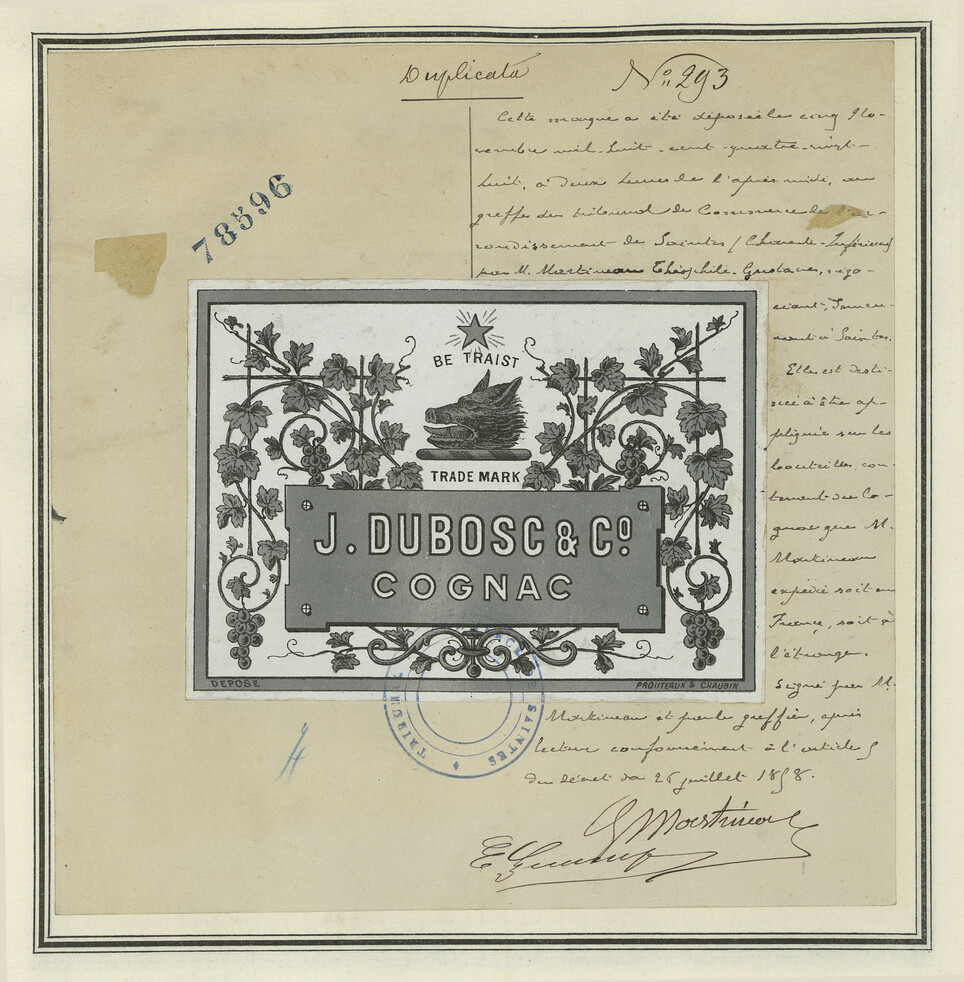 Duplicata
N° 293
Cette marque a été déposée le cinq No-
vembre mil-huit-cent-quatre-vingt-
huit, à deux heures de l'après midi, au
greffe du tribunal de Commerce de l'ar-
rondissement de Saintes (Charente-Inférieure)
par M. Martineau Théophile-Gustave, négo-
ciant, demeu-
rant à Saintes.
Elle est desti-
née à être ap-
pliquée sur les
bouteilles con-
tenant du Co-
gnac que M.
Martineau
expédie soit en
France, soit à
l'étranger.
Signé par M.
Martineau et par le greffier, après
lecture conformément à l'article 5
du décret du 26 juillet 1858.
G Martineau
78596
BE TRAIST
TRADE MARK
J. DUBOSC & Cº
COGNAC
DEPOSE
PROUTEAUX & CHAUBIN
TRIBUNAL
SAINTES